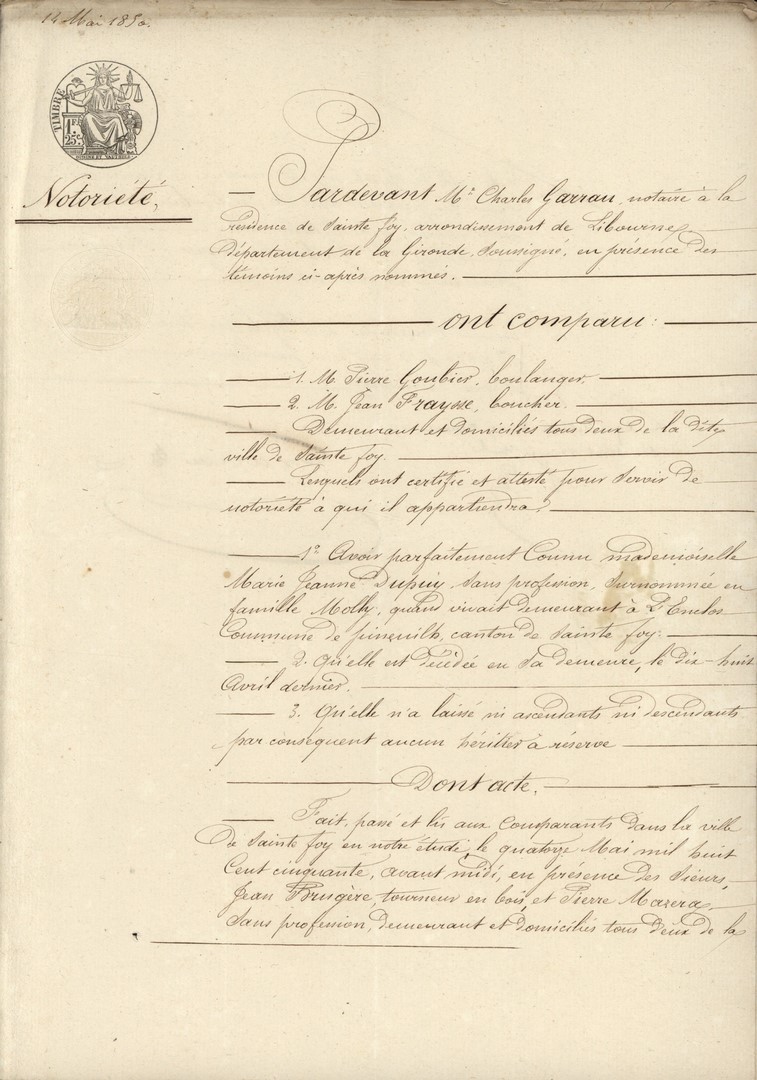 14 Mai 1850.
TIMBRE
1 FR
25 C.
Notoriété,
Pardevant Mᵉ Charles Garrau, notaire à la
résidence de Sainte foy, arrondissement de Libourne,
Département de la Gironde, soussigné, en présence des
témoins ci-après nommés.
ont comparu:
1. M. Pierre Goubier, boulanger.
2. M. Jean Fraysse, boucher.
Demeurant et domiciliés tous deux de la dite
ville de Sainte foy.
Lesquels ont certifié et attesté pour servir de
notoriété à qui il appartiendra:
1º Avoir parfaitement Connu mademoiselle
Marie Jeanne Dupuy, sans profession, surnommée en
famille Molly, quand vivait demeurant à L'Enclos
Commune de pineuilh, canton de Sainte foy.
2. Qu'elle est décédée en sa demeure, le dix-huit
Avril dernier.
3. Qu'elle n'a laissé ni ascendants ni descendants
par conséquent aucun héritier à réserve
Dont acte.
Fait, passé et lu aux Comparants dans la ville
de Sainte foy en notre étude, le quatorze Mai mil huit
Cent cinquante, avant midi, en présence des Sieurs
Jean Brugère, tourneur en bois, et Pierre Mazera,
Sans profession, demeurant et domiciliés tous deux de la